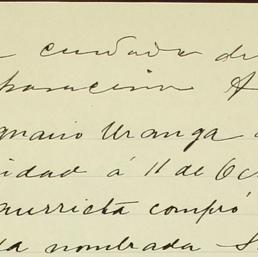 cuidado de
paracion A
gnacio Uranga
idad á 11 de Oc
urrieta compró
la nombrada S